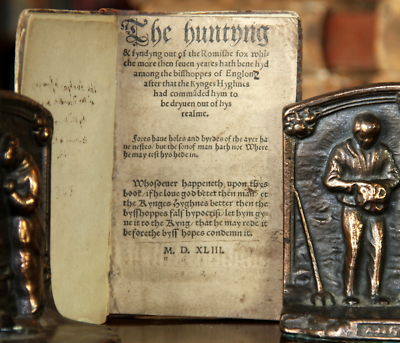 The huntyng
& fyndyng out of the Romishe fox whi-
che more then seuen yeares hath bene hyd
among the bisshoppes of Englong
after that the Kynges Hyghnes
had commāded hym to
be dryuen out of hys
realme.
Foxes haue holes and byrdes of the ayer haue
nestes. but the son of man hath not Where
he may rest hys hede in.
Whosoeuer happeneth, upon thys
book, if he loue god better then man, et
the Kynges Hyghnes better then the
bysshoppes fals hypocrisi. let hym gy-
ue it to the Kyng, that he may rede it
before the byss hopes condemn it.
M. D. XLIII.